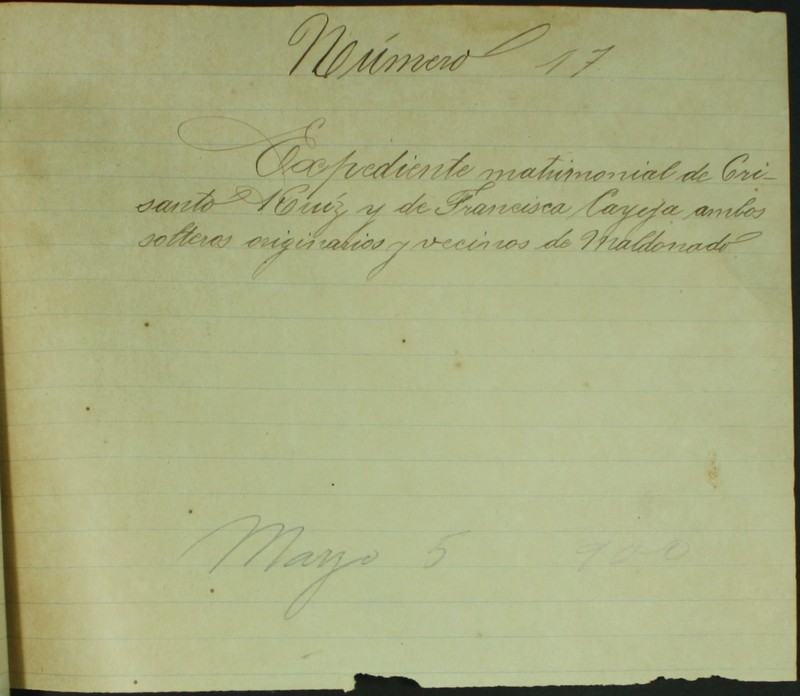 Número 17
Expediente matrimonial de Cri-
santo Ruíz y de Francisca Cayeja ambos
solteros originarios y vecinos de Maldonado
Mayo 5 900